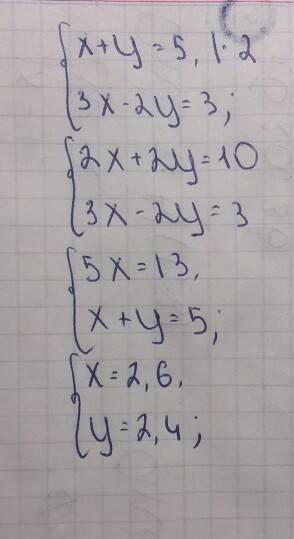 x+y=5, |·2
3x-2y=3;
2x+2y=10
3x-2y=3
5x=13,
x+y=5;
x=2,6,
y=2,4;